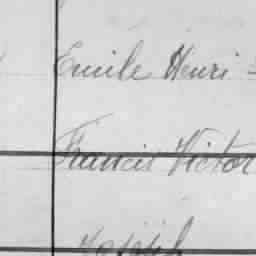 Emile Henri -
Francis Victor
Joseph